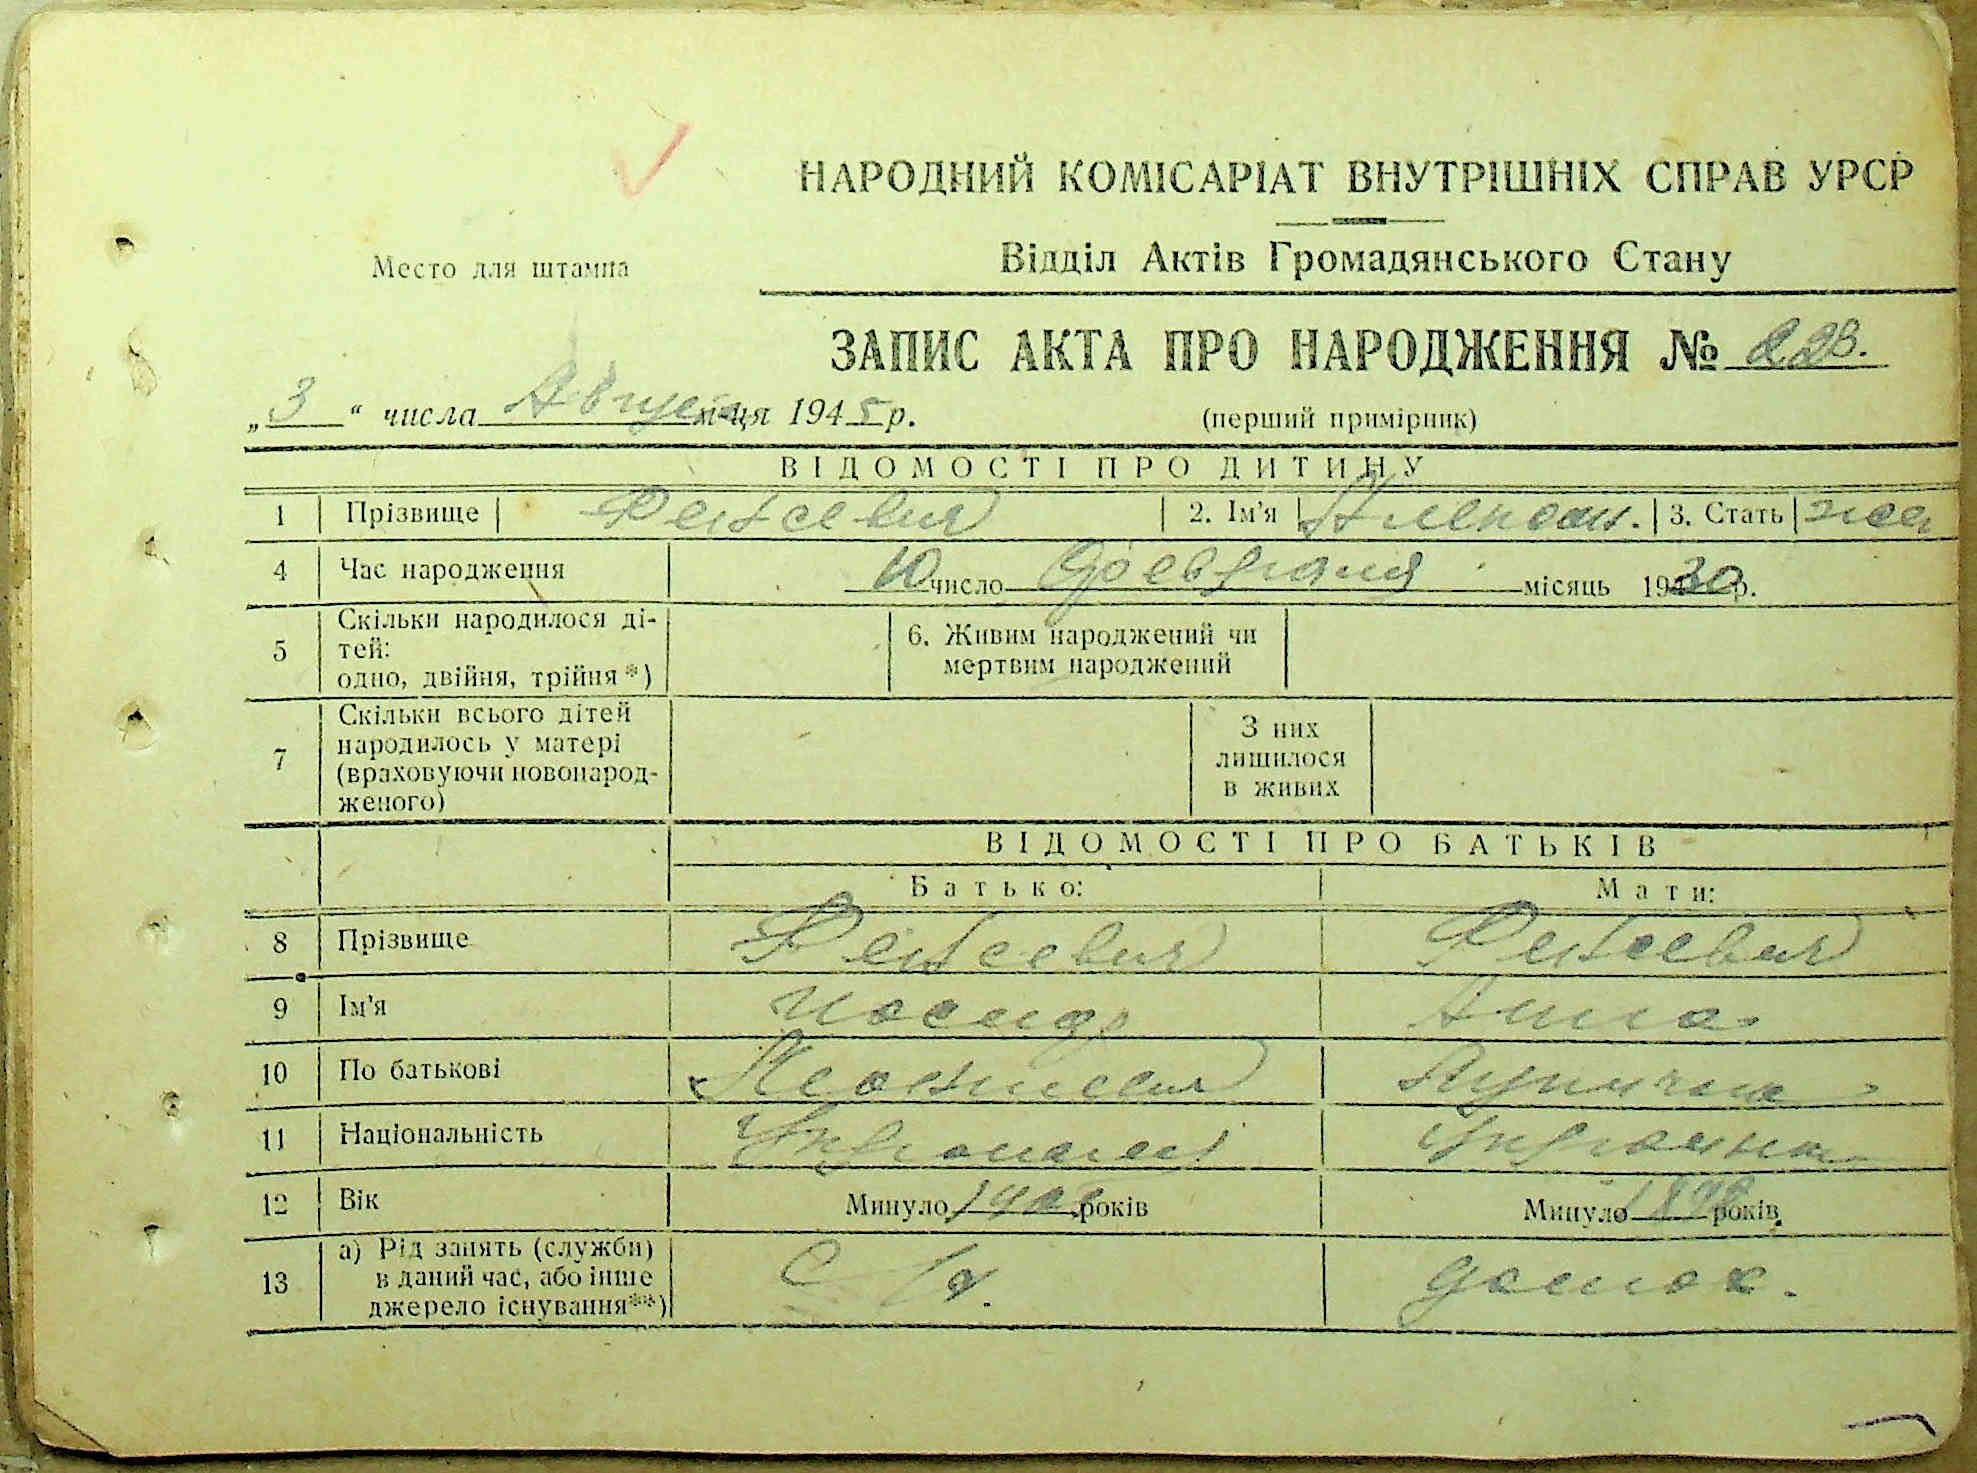 НАРОДНИЙ КОМІСАРІАТ ВНУТРІШНІХ СПРАВ УРСР
Место для штампа
Відділ Актів Громадянського Стану
ЗАПИС АКТА ПРО НАРОДЖЕННЯ № 228.
„3“ числа Августа м-ця 1945 р.
(перший примірник)
ВІДОМОСТІ ПРО ДИТИНУ
1 Прізвище 2. Ім'я 3. Стать жен
4 Час народження 10 число февраля місяць 1930 р.
5 Скільки народилося ді-
тей:
одно, двійня, трійня*)
6. Живим народжений чи
мертвим народжений
7 Скільки всього дітей
народилось у матері
(враховуючи новонарод-
женого)
З них
лишилося
в живих
ВІДОМОСТІ ПРО БАТЬКІВ
Батько: Мати:
8 Прізвище
9 Ім'я Иосиф Анна
10 По батькові
11 Національність Украинец Украинка
12 Вік Минуло років Минуло років
13 а) Рід занять (служби)
в даний час, або інше
джерело існування**)
С/х. домох.